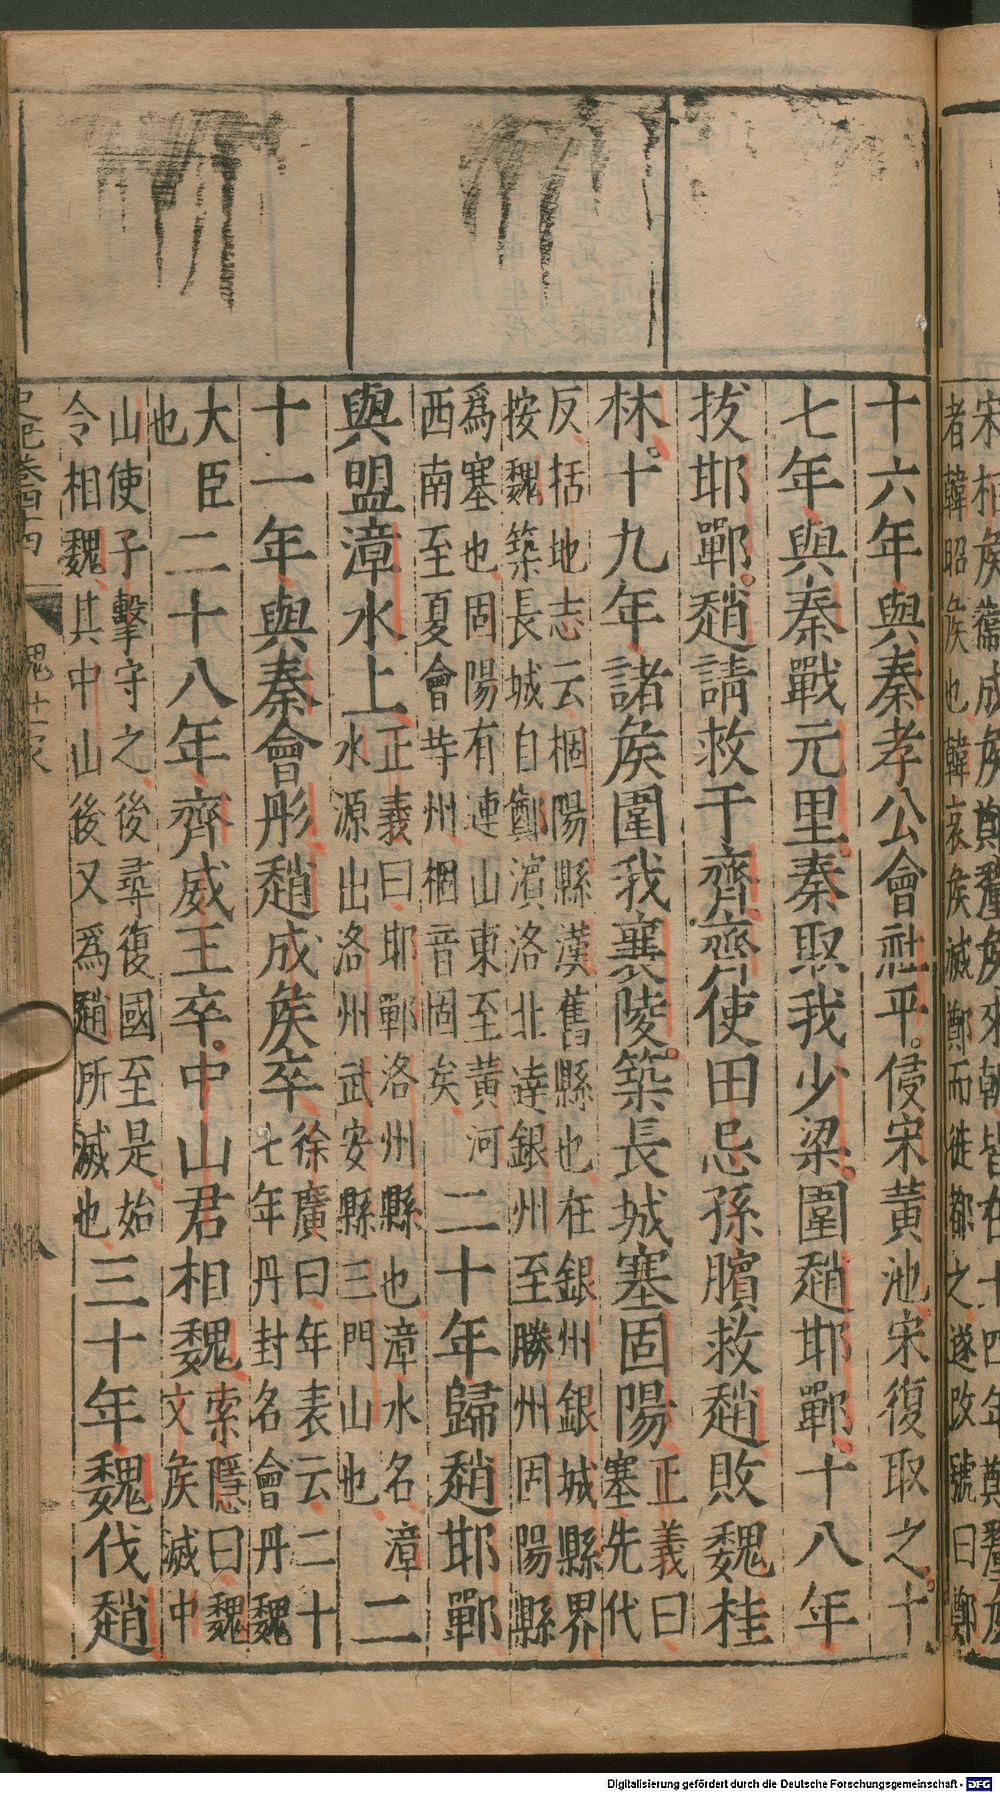 宋桓侯
成侯
者韓昭侯也韓哀侯滅鄭而徙都之遂改號曰鄭
十六年與秦孝公會社平侵宋黃池宋復取之十
七年與秦戰元里秦聚我少梁圍趙邯鄲十八年
拔邯鄲趙請救于齊齊使田忌孫臏救趙敗魏桂
林十九年諸侯圍我襄陵築長城塞固陽
正義曰
塞先代
反括地志云棝陽縣漢舊縣也在銀州銀城縣界
按魏築長城自鄭濱洛北達銀州至勝州固陽縣
爲塞也固陽有連山東至黃河
西南至夏會等州棝音固矣
二十年歸趙邯鄲
與盟漳水上
正義曰邯鄲洛州縣也漳水名漳
水源出洛州武安縣三門山也
二
十一年與秦會彤趙成侯卒
徐廣曰年表云二十
七年丹封名會丹魏
大臣
也
二十八年齊威王卒中山君相魏
索隱曰魏
文侯滅中
山使子擊守之後尋復國至是始
令相魏其中山後又爲趙所滅也
三十年魏伐趙
史記卷四十四
魏世家
八
Digitalisierung gefördert durch die Deutsche Forschungsgemeinschaft - DFG